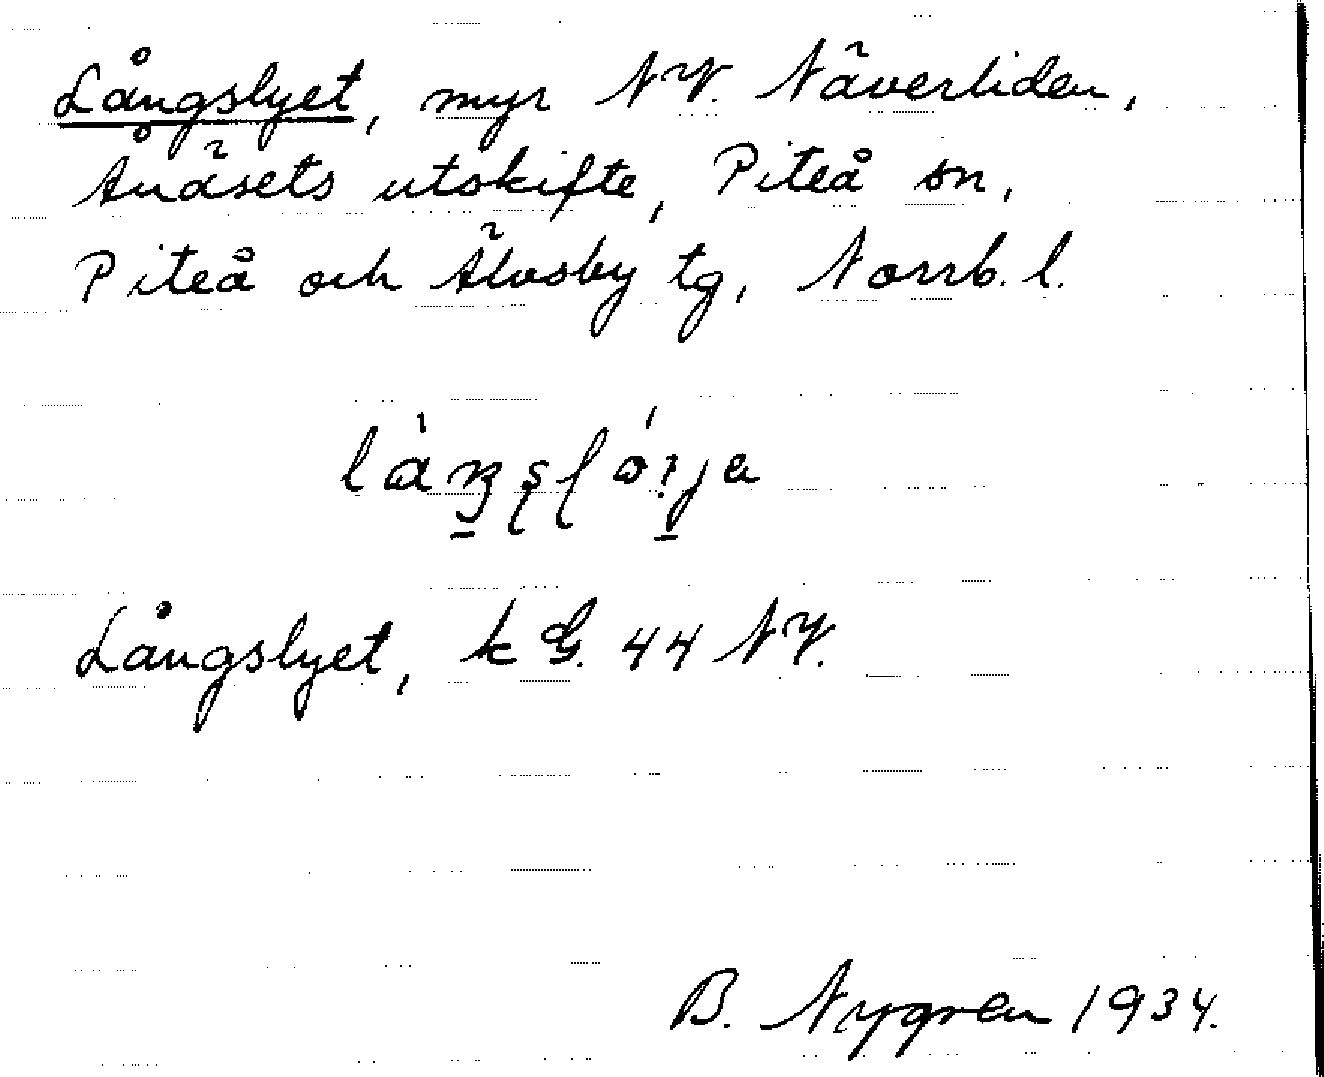 Långslyet, myr NV. Näverliden,
Ånäsets utskifte, Piteå sn,
Piteå och Älvsby tg, Norrb. l.
Långslyet, k G. 44 NV.
B. Nygren 1934.